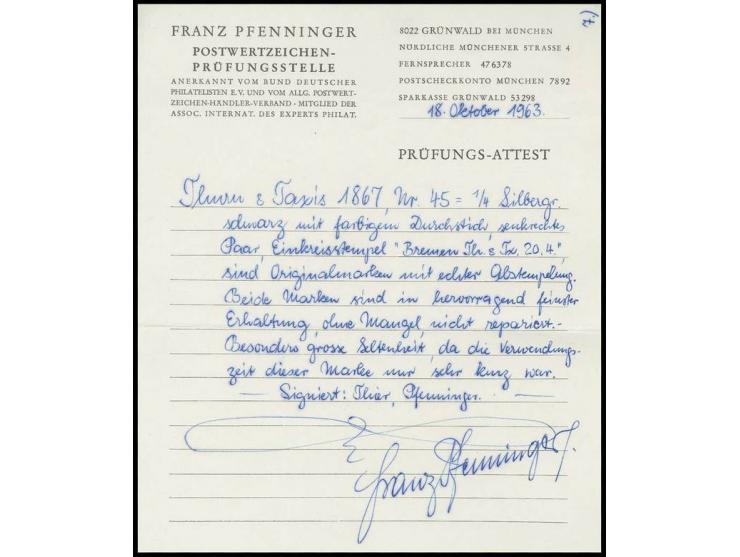 7)
FRANZ PFENNINGER
POSTWERTZEICHEN-
PRÜFUNGSSTELLE
ANERKANNT VOM BUND DEUTSCHER
PHILATELISTEN E.V. UND VOM ALLG. POSTWERT-
ZEICHEN-HÄNDLER-VERBAND · MITGLIED DER
ASSOC. INTERNAT. DES EXPERTS PHILAT.
8022 GRÜNWALD BEI MÜNCHEN
NÖRDLICHE MÜNCHENER STRASSE 4
FERNSPRECHER 476378
POSTSCHECKKONTO MÜNCHEN 7892
SPARKASSE GRÜNWALD 53298
18. Oktober 1963.
PRÜFUNGS-ATTEST
Thurn & Taxis 1867, Nr. 45 = 1/4 Silbergr.
schwarz mit farbigem Durchstich, senkrechtes
Paar, Einkreisstempel "Bremen Th. & Tx. 20.4.",
sind Originalmarken mit echter Abstempelung.
Beide Marken sind in hervorragend feinster
Erhaltung, ohne Mangel, nicht repariert.-
Besonders grosse Seltenheit, da die Verwendungs-
zeit dieser Marke nur sehr kurz war.
— Signiert: Thier, Pfenninger. —
Franz Pfenninger